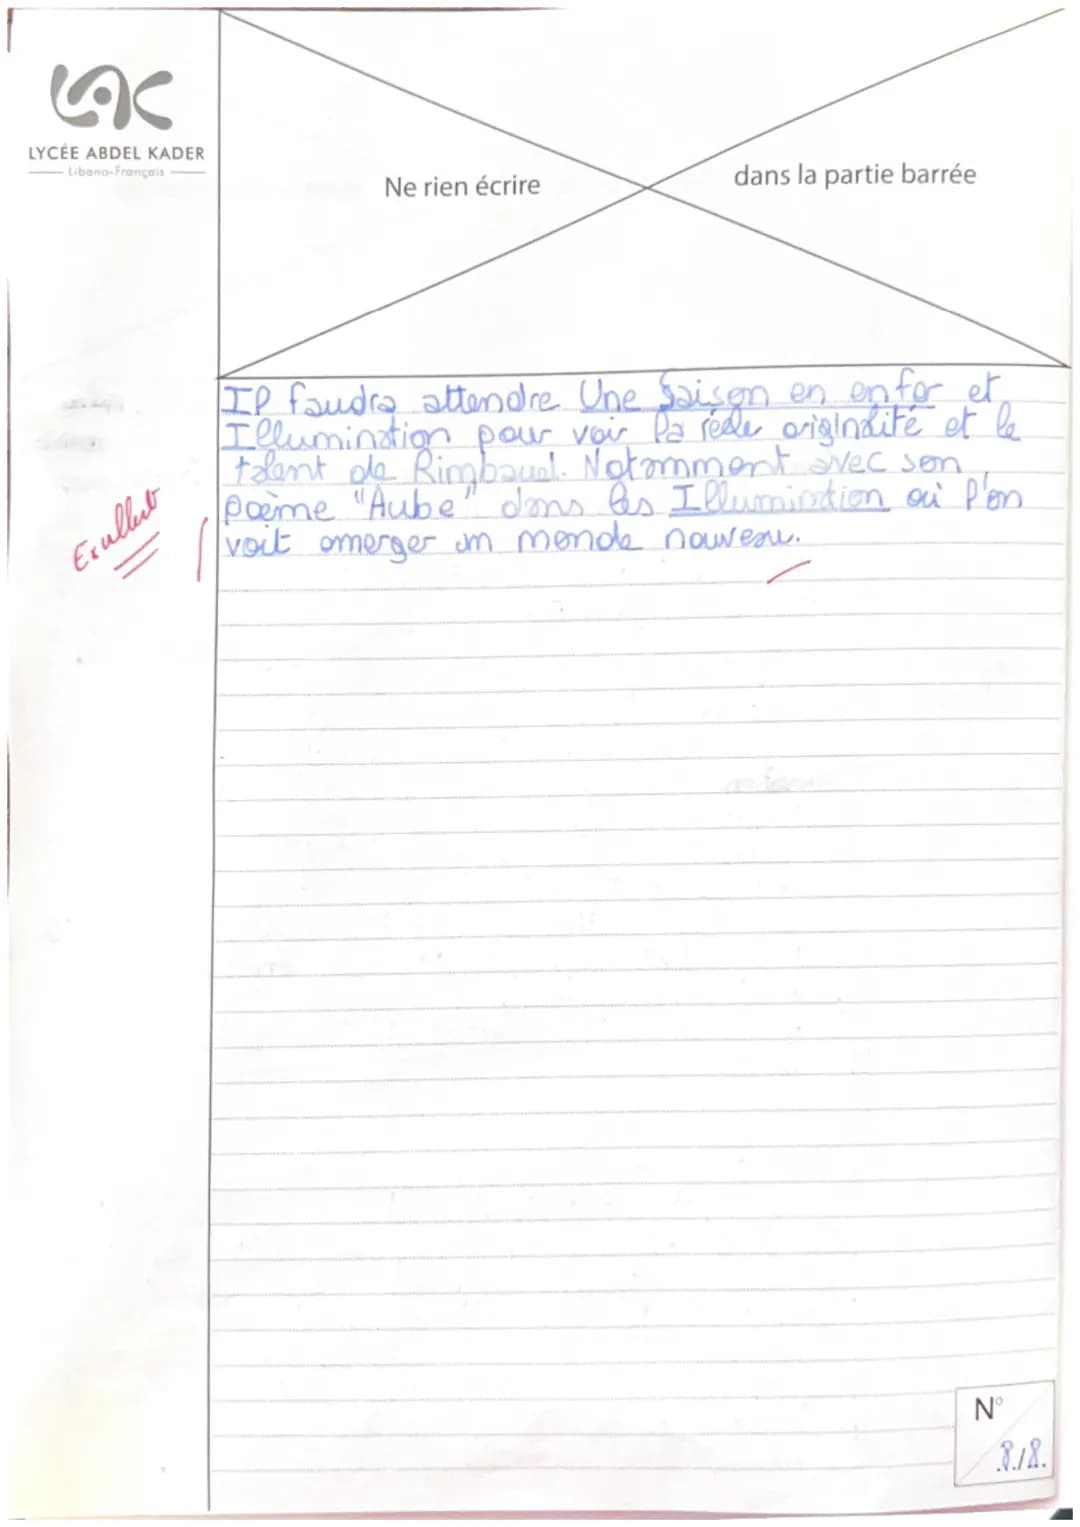 LAC
LYCÉE ABDEL KADER
Libano-Français
Ne rien écrire
dans la partie barrée
Il faudra attendre Une Saison en enfer et
Illumination pour voir la réele originalité et le
talent de Rimbaud. Notamment avec son
poème "Aube" dans les Illumination où l'on
voit émerger un monde nouveau.
Excellent
N°
8./8.